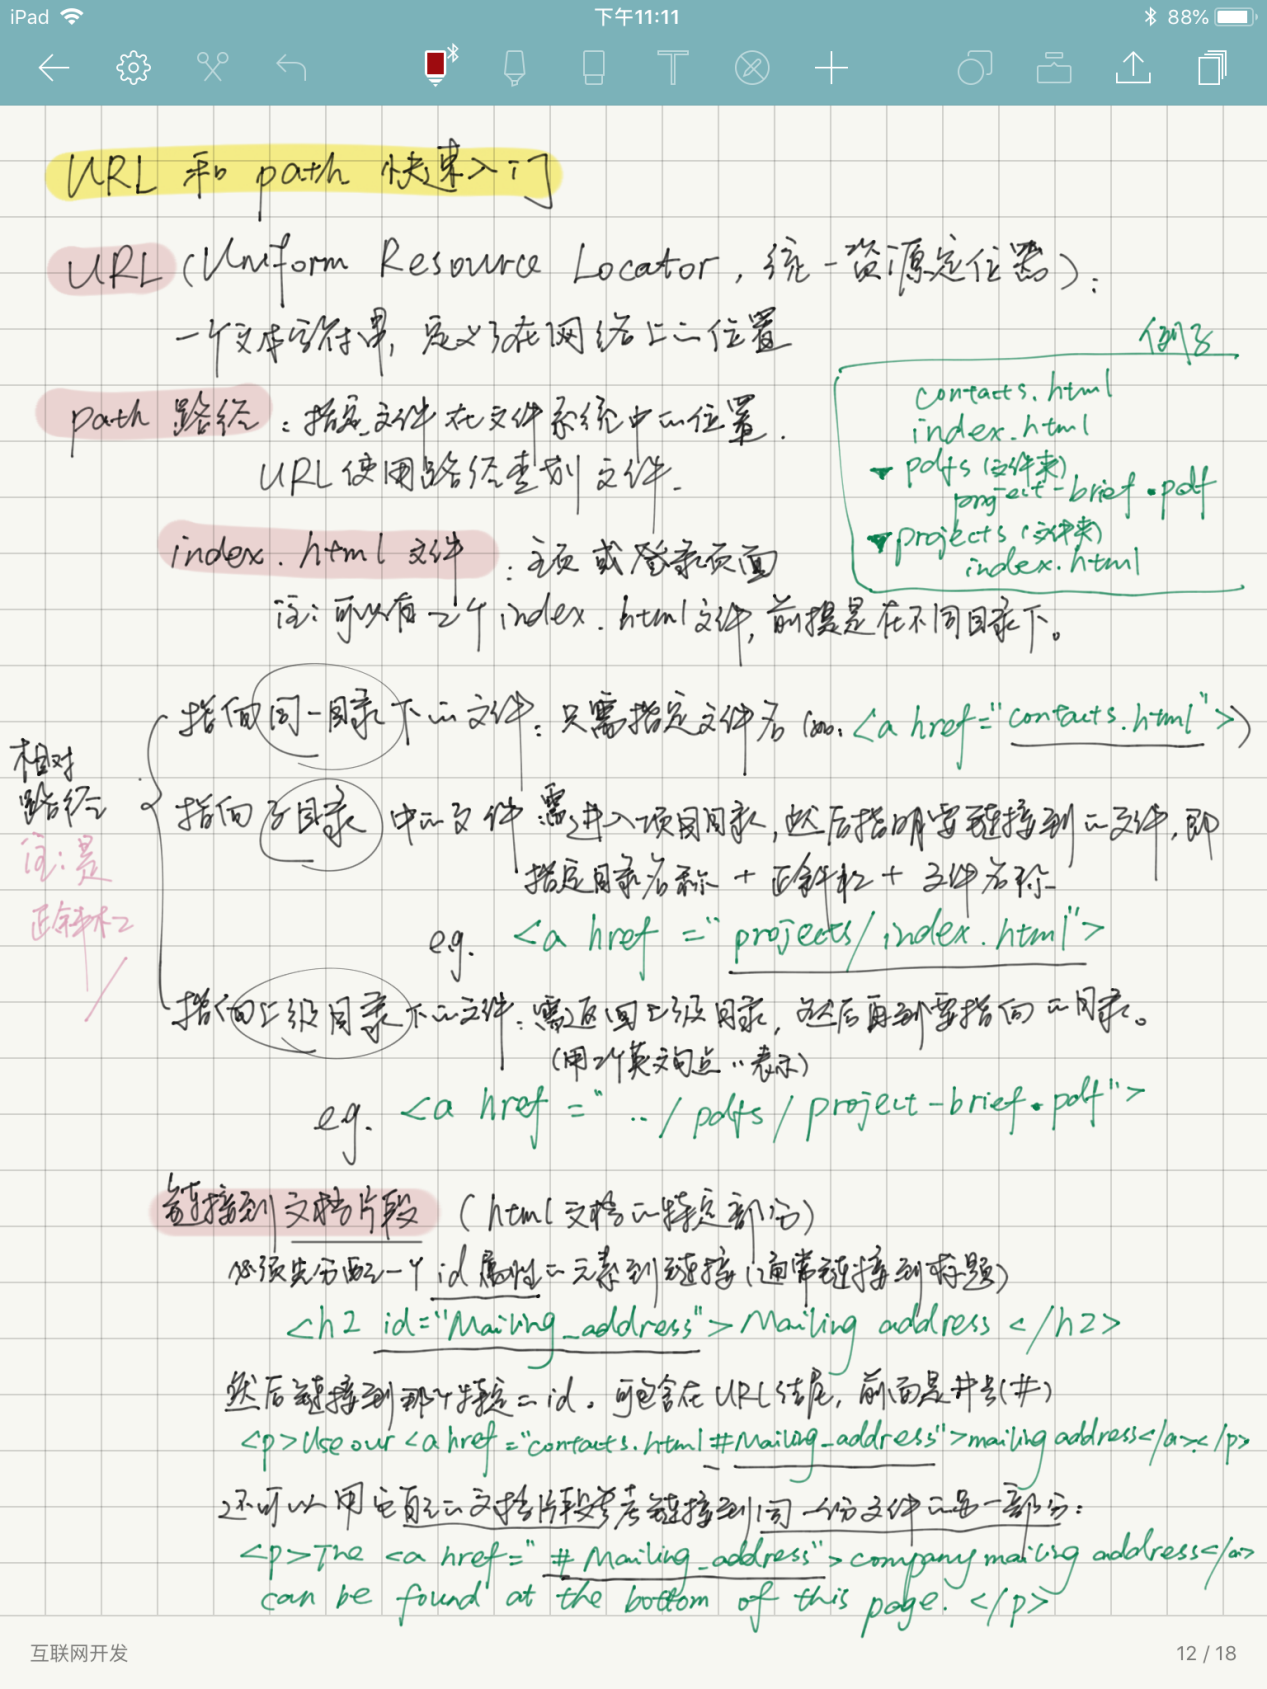 iPad 下午11:11 88%
URL 和 path 快速入门
URL (Uniform Resource Locator, 统一资源定位器):
一个文本字符串, 定义了在网络上的位置
例子
contacts.html
index.html
▼ pdfs (文件夹)
project-brief.pdf
▼ projects (文件夹)
index.html
path 路径: 指定文件在文件系统中的位置.
URL使用路径查找文件.
index.html 文件: 主页或登录页面
注: 可以有2个index.html文件, 前提是在不同目录下。
相对
路径
注: 是
正斜杠
/
指向同一目录下的文件: 只需指定文件名 (如: <a href="contacts.html">)
指向子目录中的文件: 需进入项目目录, 然后指明要链接到的文件, 即
指定目录名称 + 正斜杠 + 文件名称
e.g. <a href="projects/index.html">
指向上级目录下的文件: 需返回上级目录, 然后再到要指向的目录。
(用2个英文句点 .. 表示)
e.g. <a href="../pdfs/project-brief.pdf">
链接到文档片段 (html文档的特定部分)
必须先分配一个id属性的元素到链接 (通常链接到标题)
<h2 id="Mailing_address">Mailing address</h2>
然后链接到那个特定的id。可包含在URL结尾, 前面是井号(#)
<p>Use our <a href="contacts.html#Mailing_address">mailing address</a>.</p>
还可以用它自己的文档片段参考链接到同一份文件的另一部分:
<p>The <a href="#Mailing_address">company mailing address</a>
can be found at the bottom of this page.</p>
互联网开发 12 / 18